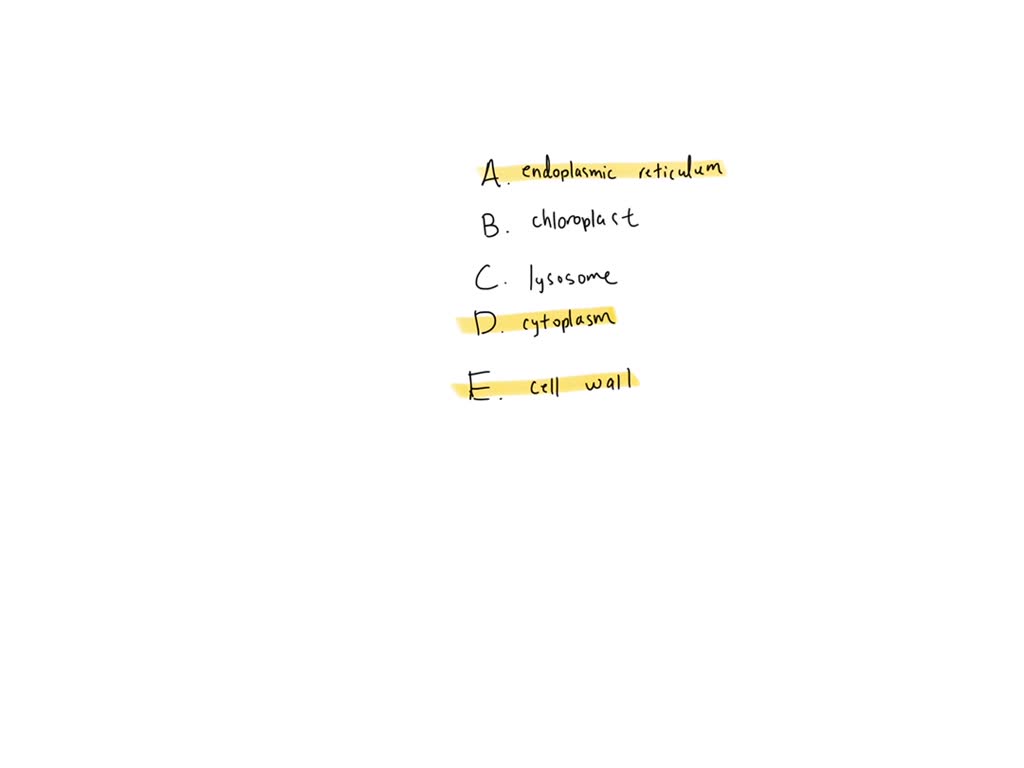 A. endoplasmic reticulum
B. chloroplast
C. lysosome
D. cytoplasm
E. cell wall